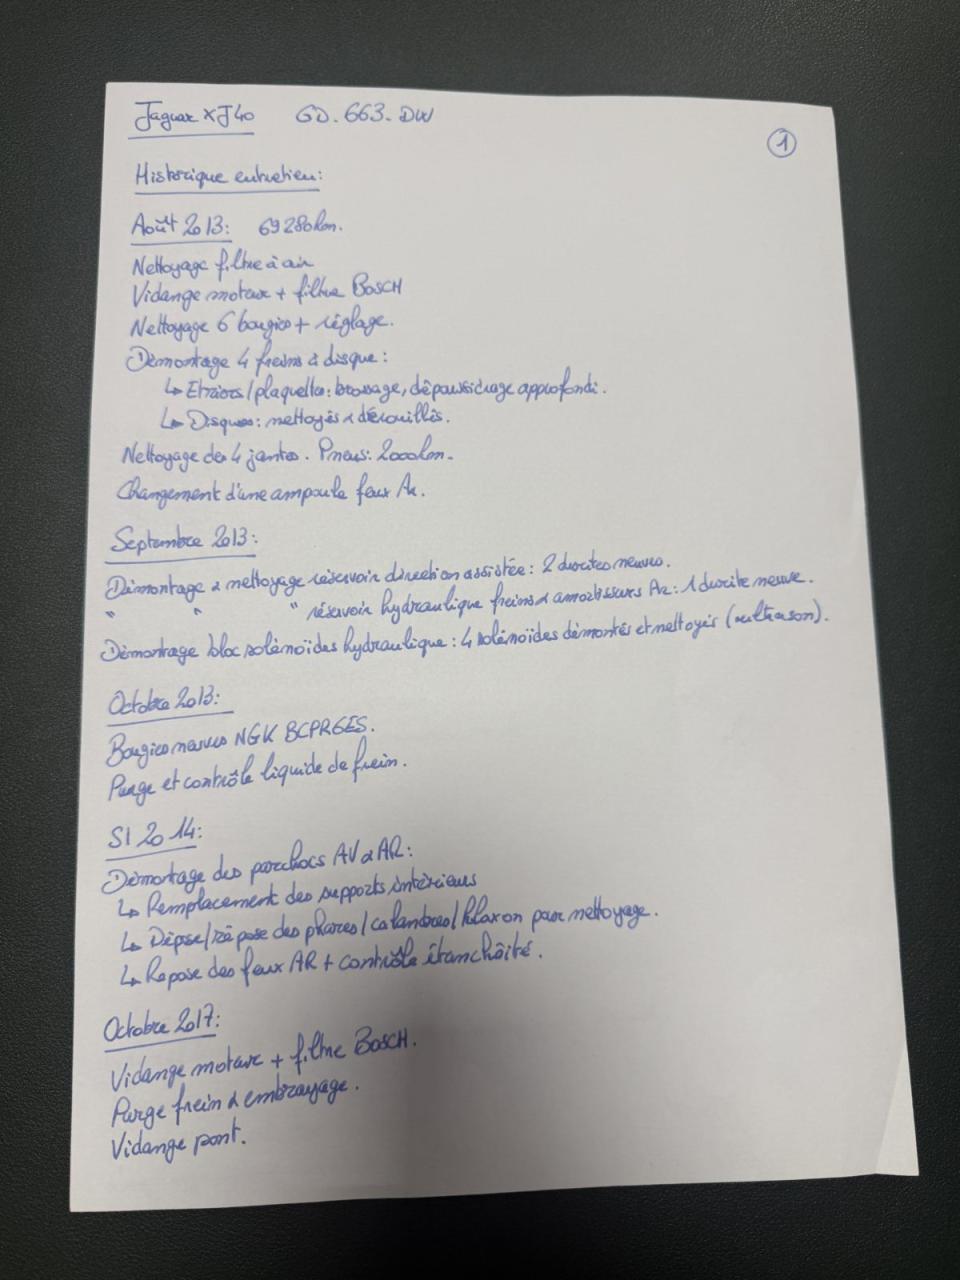 Jaguar XJ40 GD.663.DW
1
Historique entretien:
Août 2013: 69280km.
Nettoyage filtre à air
Vidange moteur + filtre BOSCH
Nettoyage 6 bougies + réglage.
Démontage 4 freins à disque:
↳ Etriers/plaquettes: brossage, dépoussiérage approfondi.
↳ Disques: nettoyés & dérouillés.
Nettoyage des 4 jantes. Pneus: 2000km.
Changement d'une ampoule feux Ar.
Septembre 2013:
Démontage & nettoyage réservoir direction assistée: 2 durites neuves.
" " " réservoir hydraulique freins & amortisseurs Ar: 1 durite neuve.
Démontage bloc solénoïdes hydraulique: 4 solénoïdes démontés et nettoyés (ultrason).
Octobre 2013:
Bougies neuves NGK BCPR6ES.
Purge et contrôle liquide de frein.
S1 2014:
Démontage des parechocs AV & AR:
↳ Remplacement des supports intérieurs
↳ Dépose/repose des phares/calandres/klaxon pour nettoyage.
↳ Repose des feux AR + contrôle étanchéité.
Octobre 2017:
Vidange moteur + filtre BOSCH.
Purge frein & embrayage.
Vidange pont.